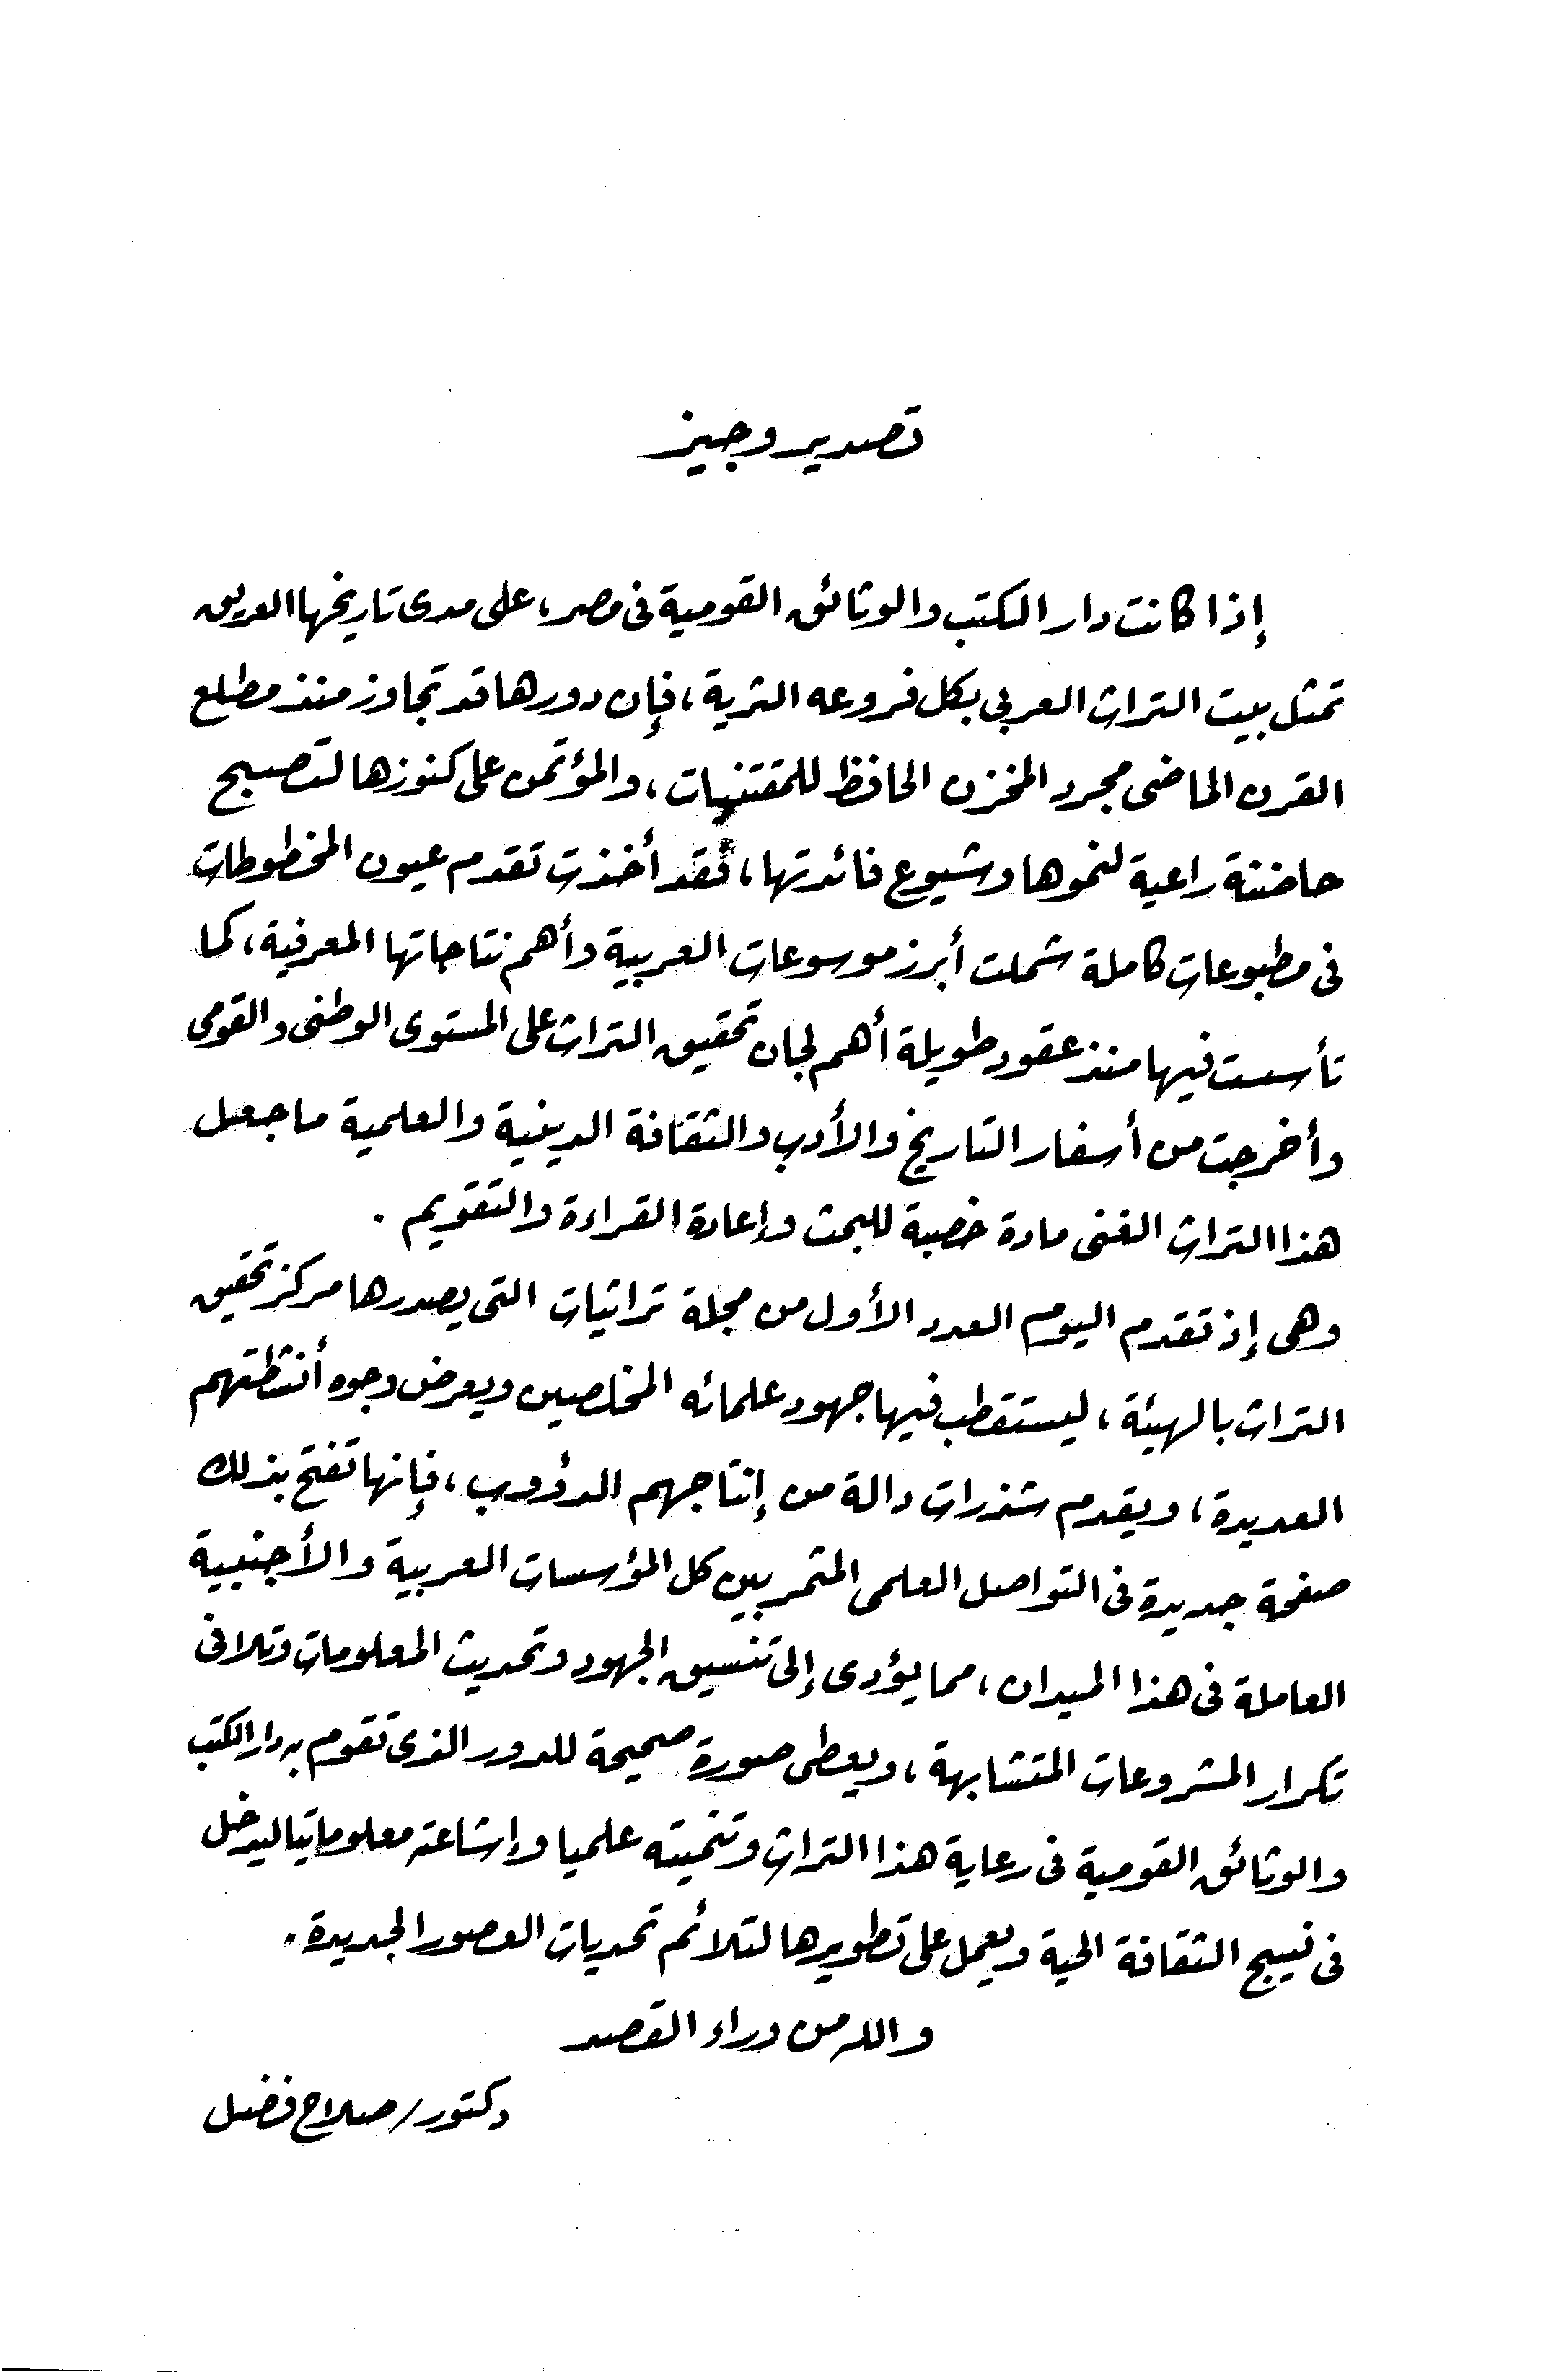 تصدير وجيز
إذا كانت دار الكتب والوثائق القومية فى مصر، على مدى تاريخها العريق
تمثل بيت التراث العربى بكل فروعه الثرية، فإن دورها قد تجاوز منذ مطلع
القرن الماضى مجرد المخزن الحافظ للمقتنيات، والمؤتمن على كنوزها لتصبح
حاضنة راعية لنموها وشيوع فائدتها، فقد أخذت تقدم عيون المخطوطات
فى مطبوعات كاملة شملت أبرز موسوعات العربية وأهم نتاجاتها المعرفية، كما
تأسست فيها منذ عقود طويلة أهم لجان تحقيق التراث على المستوى الوطنى والقومى
وأخرجت من أسفار التاريخ والأدب والثقافة الدينية والعلمية ما جعل
هذا التراث الغنى مادة خصبة للبحث وإعادة القراءة والتقويم .
وهى إذ تقدم اليوم العدد الأول من مجلة تراثيات التى يصدرها مركز تحقيق
التراث بالهيئة، ليستقطب فيها جهود علمائه المخلصين ويعرض وجوه أنشطتهم
العديدة، ويقدم شذرات دالة من إنتاجهم الدؤوب، فإنها تفتح بذلك
صفحة جديدة فى التواصل العلمى المثمر بين كل المؤسسات العربية والأجنبية
العاملة فى هذا الميدان، مما يؤدى إلى تنسيق الجهود وتحديث المعلومات وتلافى
تكرار المشروعات المتشابهة، ويعطى صورة صحيحة للدور الذى تقوم به دار الكتب
والوثائق القومية فى رعاية هذا التراث وتنميته علميا وإشاعته معلوماتيا ليدخل
فى نسيج الثقافة الحية ويعمل على تطويرها لتلائم تحديات العصور الجديدة.
والله من وراء القصد
دكتور/ صلاح فضل